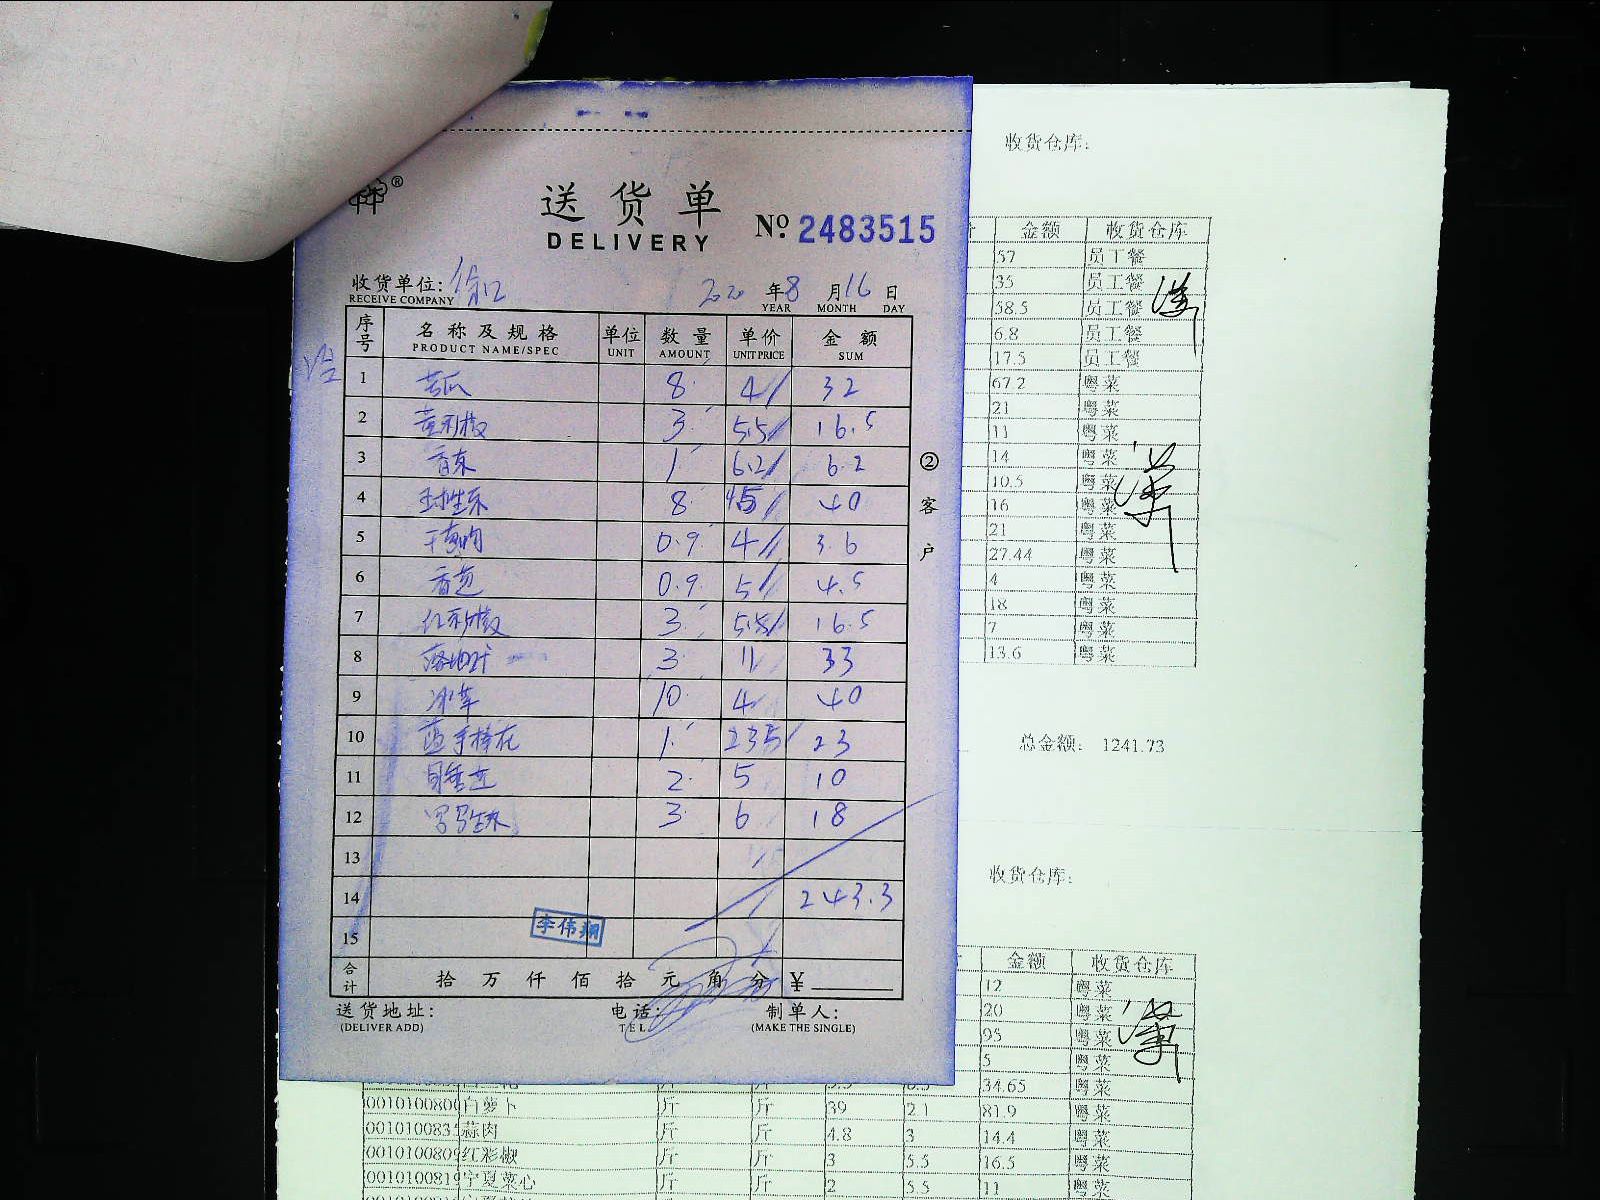 送货单
DELIVERY
№ 2483515
收货单位:
RECEIVE COMPANY
2020 年 8 月 16 日
YEAR MONTH DAY
序号 名称及规格 单位 数量 单价 金额
PRODUCT NAME/SPEC UNIT AMOUNT UNIT PRICE SUM
1 苦瓜 8 4 32
2 黄彩椒 3 5.5 16.5
3 香芹 1 6.2 6.2
4 球生菜 8 5 40
5 0.9 4 3.6
6 香芝 0.9 5 4.5
7 红彩椒 3 5.5 16.5
8 3 11 33
9 冰草 10 4 40
10 1 23 23
11 2 5 10
12 罗马生菜 3 6 18
13
14 243.3
15
李伟翔
合计 拾 万 仟 佰 拾 元 角 分 ¥
送货地址:
(DELIVER ADD)
电话:
TEL
制单人:
(MAKE THE SINGLE)
② 客户
收货仓库:
金额 收货仓库
57 员工餐
35 员工餐
58.5 员工餐
6.8 员工餐
17.5 员工餐
67.2 粤菜
21 粤菜
11 粤菜
14 粤菜
10.5 粤菜
16 粤菜
21 粤菜
27.44 粤菜
4 粤菜
18 粤菜
7 粤菜
13.6 粤菜
总金额: 1241.73
收货仓库:
金额 收货仓库
12 粤菜
20 粤菜
95 粤菜
5 粤菜
34.65 粤菜
白萝卜 斤 斤 39 2.1 81.9 粤菜
蒜肉 斤 斤 4.8 3 14.4 粤菜
红彩椒 斤 斤 3 5.5 16.5 粤菜
宁夏菜心 斤 斤 2 5.5 11 粤菜